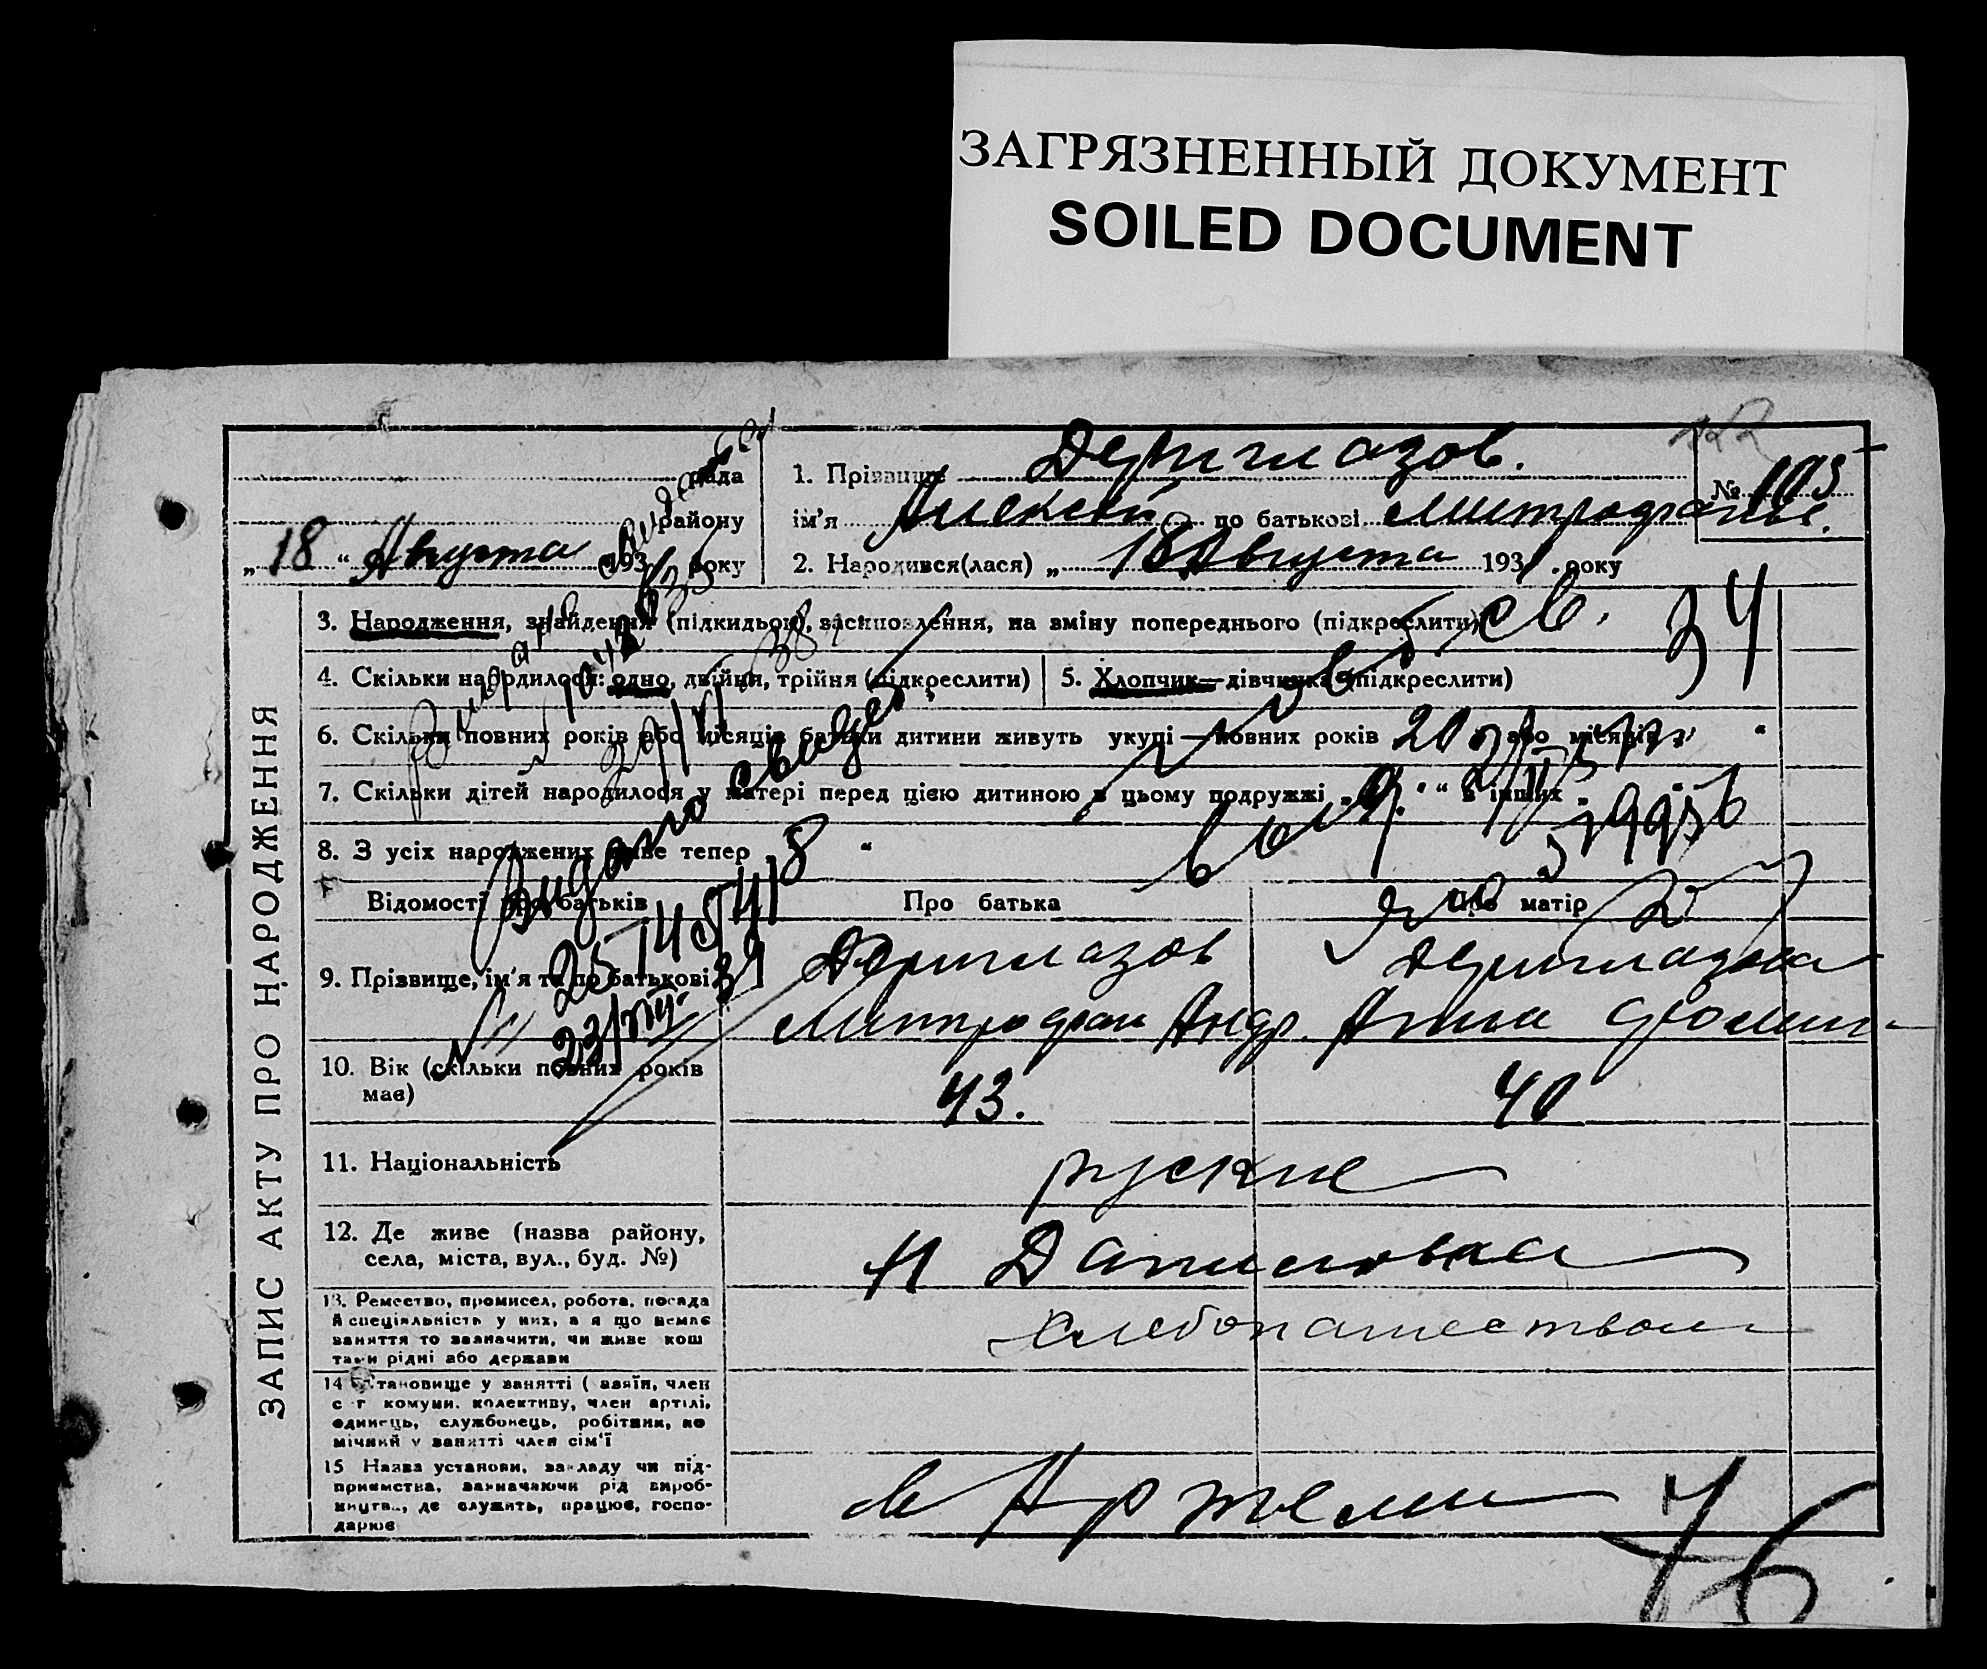 ЗАГРЯЗНЕННЫЙ ДОКУМЕНТ
SOILED DOCUMENT
рада
району
„ 18 “ Августа 193 року
1. Прізвище Дериглазов.
№ 195
ім'я Алексей по батькові Митрофанов.
2. Народився(лася) „ 18 Августа 1931 року
ЗАПИС АКТУ ПРО НАРОДЖЕННЯ
3. Народження, знайдення (підкидьою), засиновлення, на зміну попереднього (підкреслити)
34
4. Скільки народилося: одно, двійня, трійня (підкреслити)
5. Хлопчик—дівчинка (підкреслити)
6. Скільки повних років або місяців батьки дитини живуть укупі — повних років 20 або місяців
7. Скільки дітей народилося у матері перед цією дитиною в цьому подружжі „ 9. “ в інших
8. З усіх народжених живе тепер 8 “
Видано свидет.
Відомості про батьків
Про батька
Про матір
9. Прізвище, ім'я та по батькові
Дериглазов
Дериглазова
Митрофан Андр.
Анна
23/VII 39
10. Вік (скільки повних років має)
43.
40
11. Національність
руские
12. Де живе (назва району,
села, міста, вул., буд. №)
Н Даниловка
13. Ремество, промисел, робота, посада
й спеціяльність у них, а я що немає
заняття то зазначити, чи живе кош
тами рідні або держави
хлебопашеством
14 Становище у занятті ( азяїн, член
с-г комуни, колективу, член артілі,
одинець, службовець, робітник, по
мічний у занятті член сім'ї
15 Назва установи, закладу чи під-
приємства, зазначаючи рід вироб-
ництв., де служить, працює, госпо-
дарює
в Артели
76